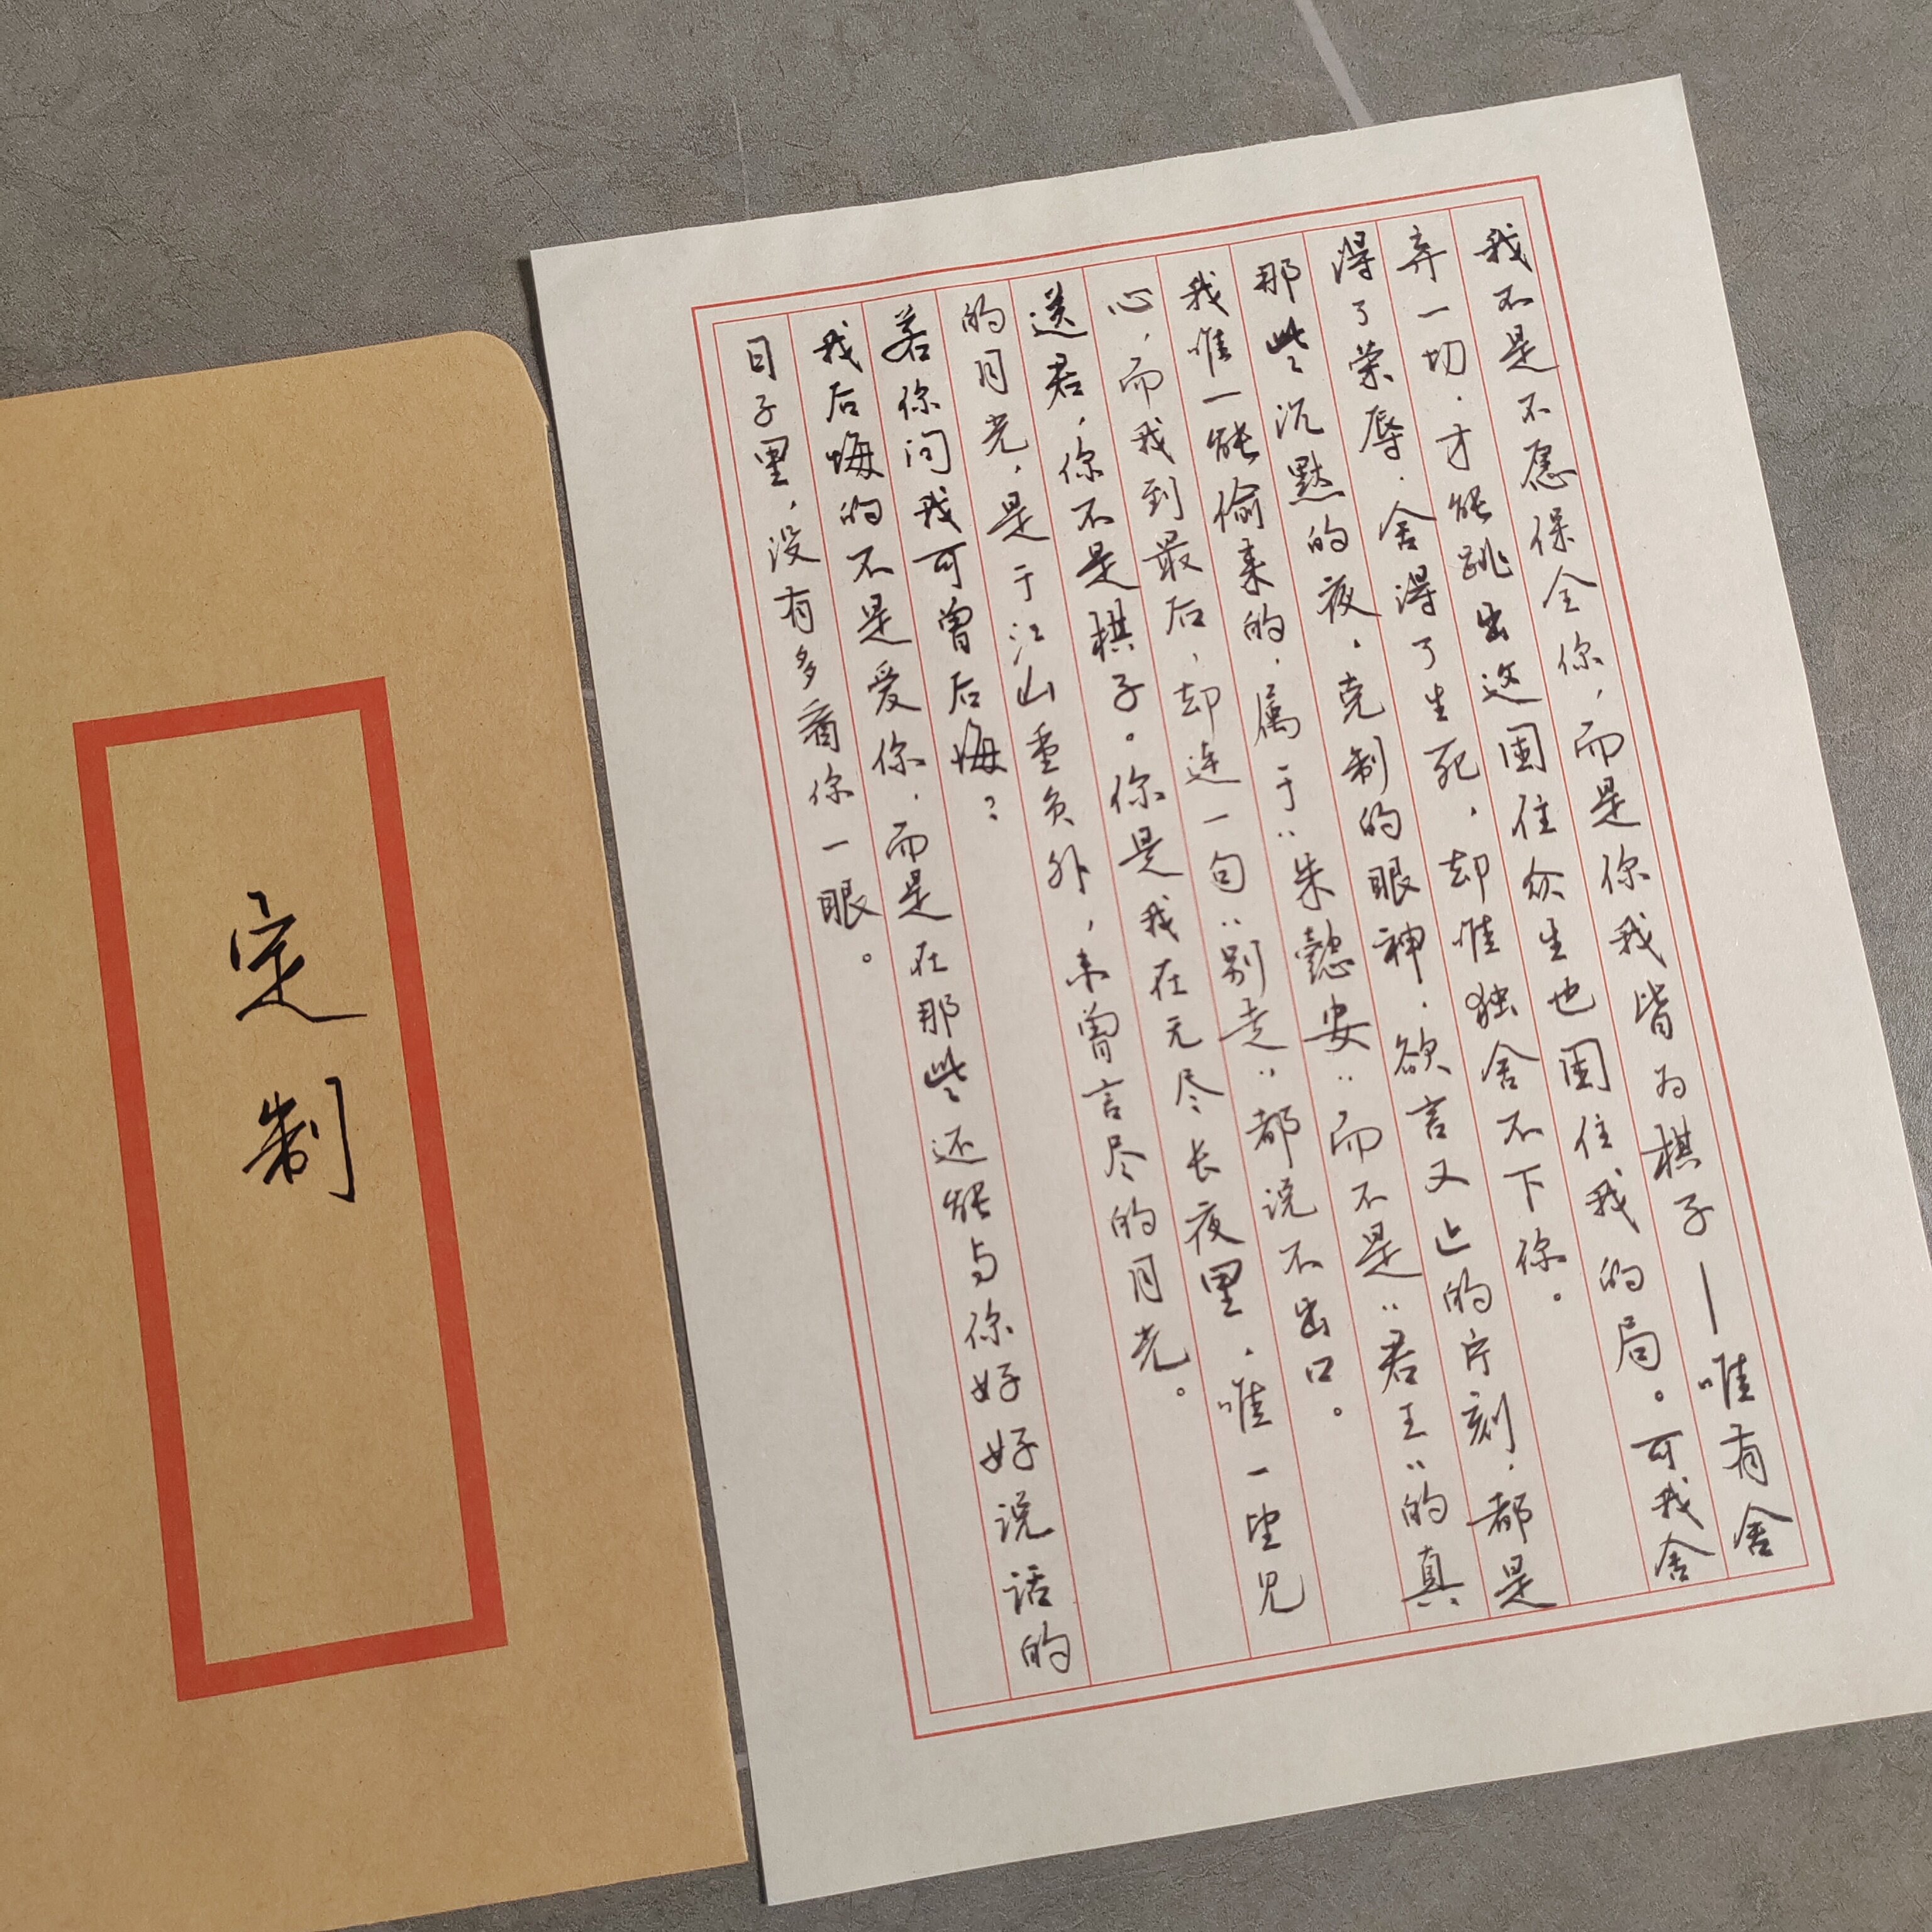 定制
我不是不愿保全你，而是你我皆为棋子—唯有舍
弃一切，才能跳出这困住众生也困住我的局。可我舍
得了荣辱，舍得了生死，却唯独舍不下你。
那些沉默的夜，克制的眼神，欲言又止的片刻，都是
我唯一能偷来的，属于“朱懿安”而不是“君王”的真
心，而我到最后，却连一句“别走”都说不出口。
送君，你不是棋子。你是我在无尽长夜里，唯一望见
的月光，是于江山重负外，未曾言尽的月光。
若你问我可曾后悔？
我后悔的不是爱你，而是在那些还能与你好好说话的
日子里，没有多看你一眼。